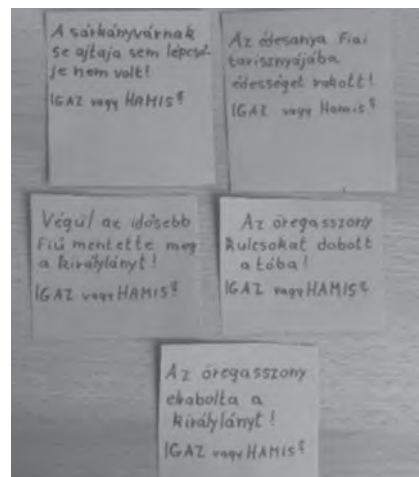 A sárkányvárnak
se ajtaja sem lépcső-
je nem volt!
IGAZ vagy HAMIS?
Az édesanya fiai
tarisznyájába
édességet rakott!
IGAZ vagy Hamis?
Végül az idősebb
fiú mentette meg
a királylányt!
IGAZ vagy HAMIS?
Az öregasszony
kulcsokat dobott
a tóba!
IGAZ vagy HAMIS?
Az öregasszony
elrabolta a
királylányt!
IGAZ vagy HAMIS?